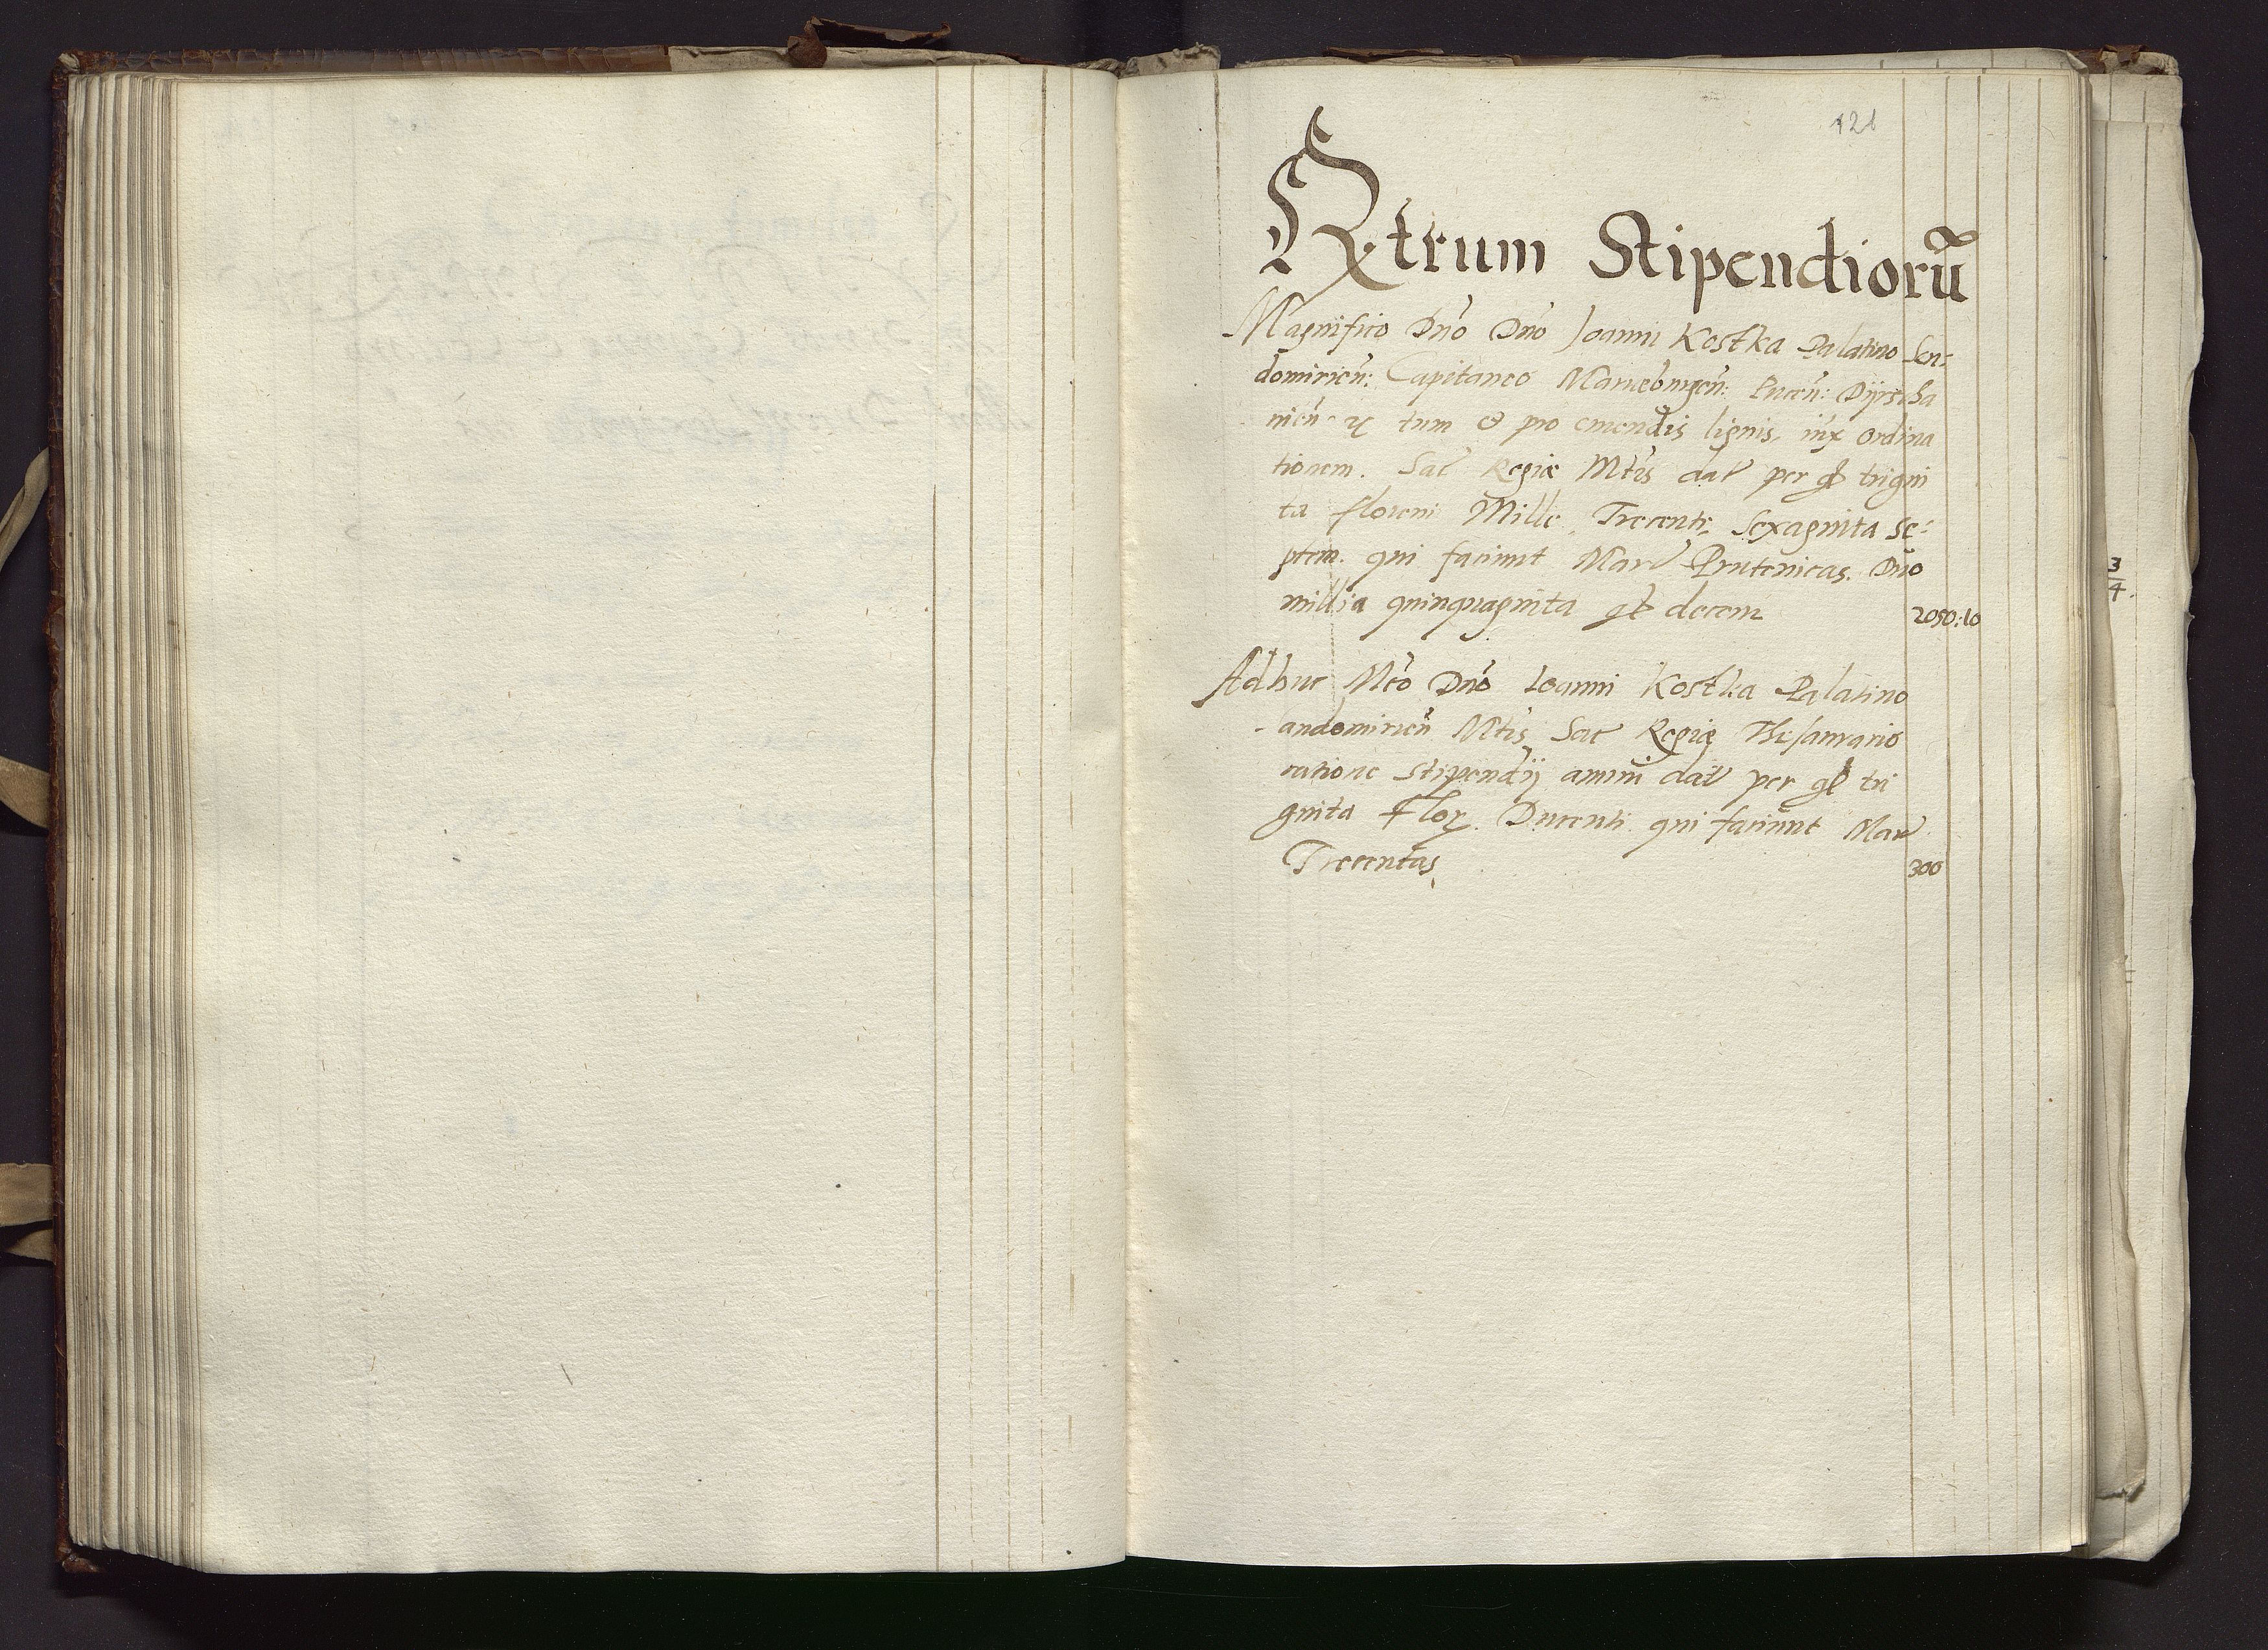 121
Rx̃trum Stipendiorũ
Magnifico Dńo Dńo Joanni Kostka Palatino San-
domirieñ: Capitaneo Marieburgeñ: Puceñ: Dijrscha
uieñ ꝛc tum & pro emendis lignis, iux ordina
tionem. Sac Regiæ Mtis dat per gl trigin
ta floreni Mille, Trecenti, Sexaginta se-
ptem. qui faciunt Marc Prutenicas. Duo
millia quinquaginta gl decem
2050:10
Adhuc Mco Dńo Ioanni Kostka Palatino
Sandomirieñ Mtis Sac Regię Thesaurario
ratione stipendij annui dat per gl tri
ginta Flor. Ducenti qui faciunt Marc
Trecentas,
300
3
4.